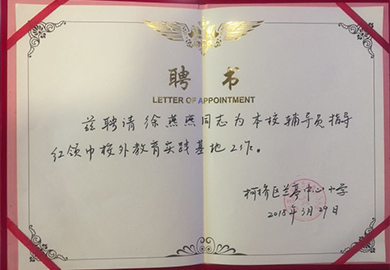 聘书
LETTER OF APPOINTMENT
兹聘请徐燕燕同志为本校辅导员指导
红领巾校外教育实践基地工作。
柯桥区兰亭中心小学
2018年5月29日